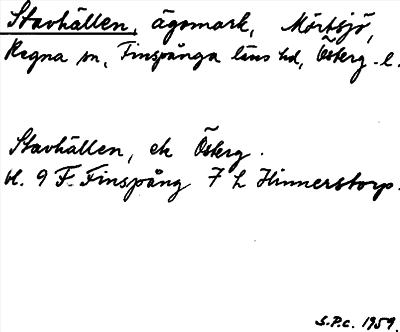 Stavhällen, ägomark, Mörtsjö,
Regna sn, Finspånga läns hd, Österg. l.
Stavhällen, ek Österg.
bl. 9 F. Finspång 7 h Hinnerstorp.
S.P.c. 1959.